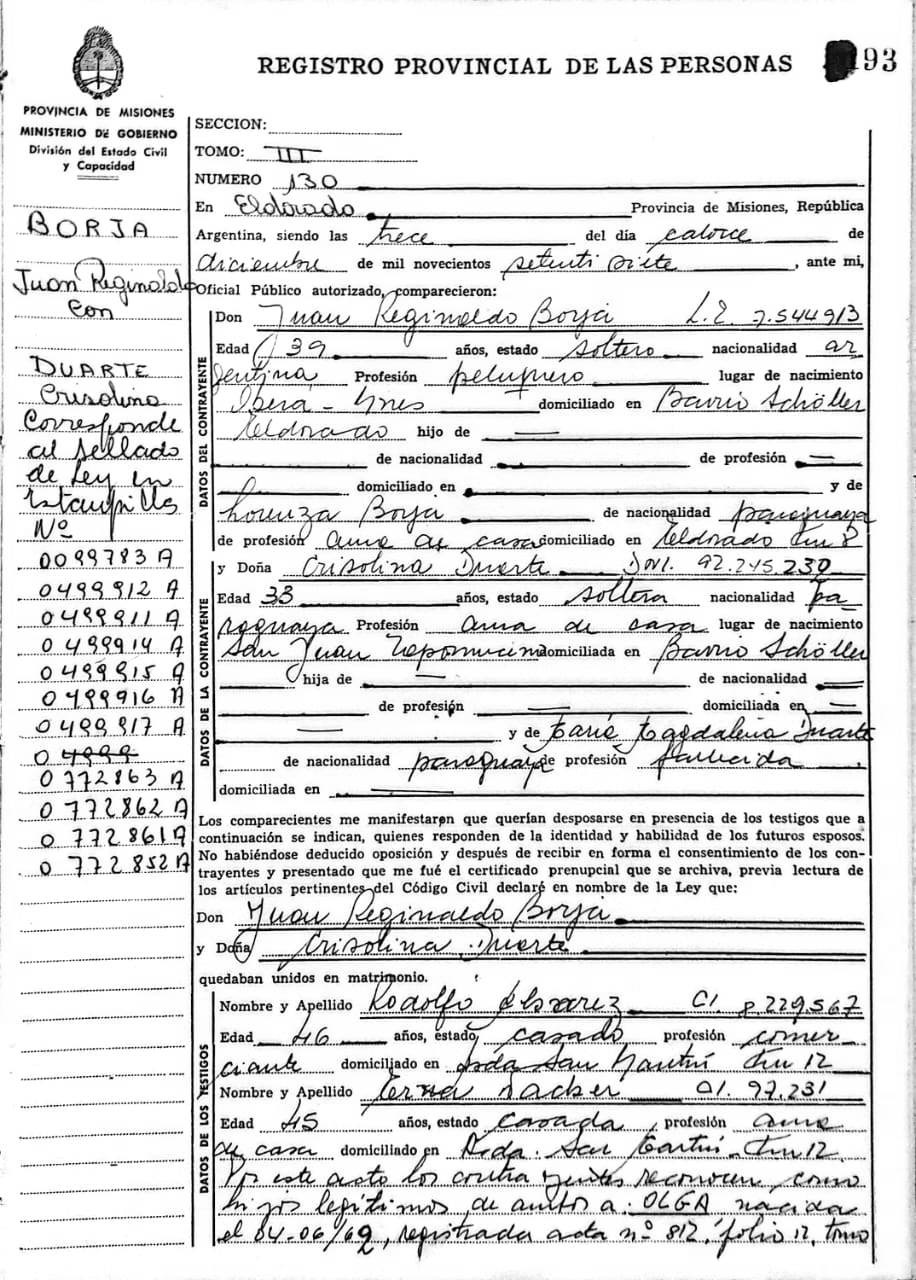 REGISTRO PROVINCIAL DE LAS PERSONAS 93
PROVINCIA DE MISIONES
MINISTERIO DE GOBIERNO
División del Estado Civil
y Capacidad
BORJA
Juan Reginaldo
con
DUARTE
Crisolina
Corresponde
al sellado
de Ley en
Estampilla
Nº
0099783 A
0499912 A
0499911 A
0499914 A
0499915 A
0499916 A
0499917 A
0 4999
0772863 A
0772862 A
0772861 A
0772852 A
SECCION:
TOMO: III
NUMERO 130
En Eldorado Provincia de Misiones, República
Argentina, siendo las trece del día catorce de
diciembre de mil novecientos setenti siete, ante mi,
Oficial Público autorizado, comparecieron:
DATOS DEL CONTRAYENTE
Don Juan Reginaldo Borja L.E. 7.544913
Edad 39 años, estado soltero nacionalidad ar
gentina Profesión peluquero lugar de nacimiento
Iberá - domiciliado en Barrio Schöller
Eldorado hijo de
de nacionalidad de profesión
domiciliado en y de
Lorenza Borja de nacionalidad paraguaya
de profesión ama de casa domiciliado en Eldorado Km 8
DATOS DE LA CONTRAYENTE
y Doña Crisolina Duarte 92.245.239
Edad 33 años, estado soltera nacionalidad pa
raguaya Profesión ama de casa lugar de nacimiento
San Juan Nepomuceno domiciliada en Barrio Schöller
hija de de nacionalidad
de profesión domiciliada en
y de María Magdalena Duarte
de nacionalidad paraguaya de profesión fallecida
domiciliada en
Los comparecientes me manifestaron que querían desposarse en presencia de los testigos que a
continuación se indican, quienes responden de la identidad y habilidad de los futuros esposos.
No habiéndose deducido oposición y después de recibir en forma el consentimiento de los con-
trayentes y presentado que me fué el certificado prenupcial que se archiva, previa lectura de
los artículos pertinentes del Código Civil declaré en nombre de la Ley que:
Don Juan Reginaldo Borja
y Doña Crisolina Duarte
quedaban unidos en matrimonio.
DATOS DE LOS TESTIGOS
Nombre y Apellido Rodolfo Alvarez CI 8.229.567
Edad 46 años, estado casado profesión comer
ciante domiciliado en Avda San Martín Km 12
Nombre y Apellido Erna CI. 97.231
Edad 45 años, estado casada, profesión ama
de casa domiciliado en Avda. San Martín Km 12.
Por este acto los contrayentes reconocen como
hijos legítimos de ambos a: OLGA nacida
el 04-06/62, registrada acta nº 812, folio 12, tomo